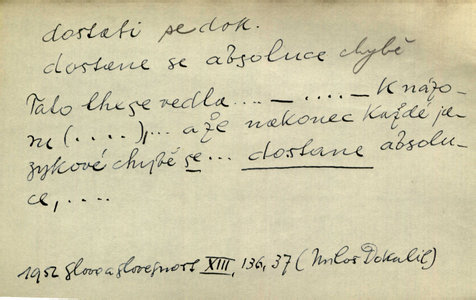 dostati se dok.
dostane se absoluce chybě
Tato these vedla .... — .... — K názo-
ru (....),... a že nakonec každé ja-
zykové chybě se... dostane absolu-
ce, ....
1952 Slovo a slovesnost XIII, 136, 37 (Miloš Dokulil)